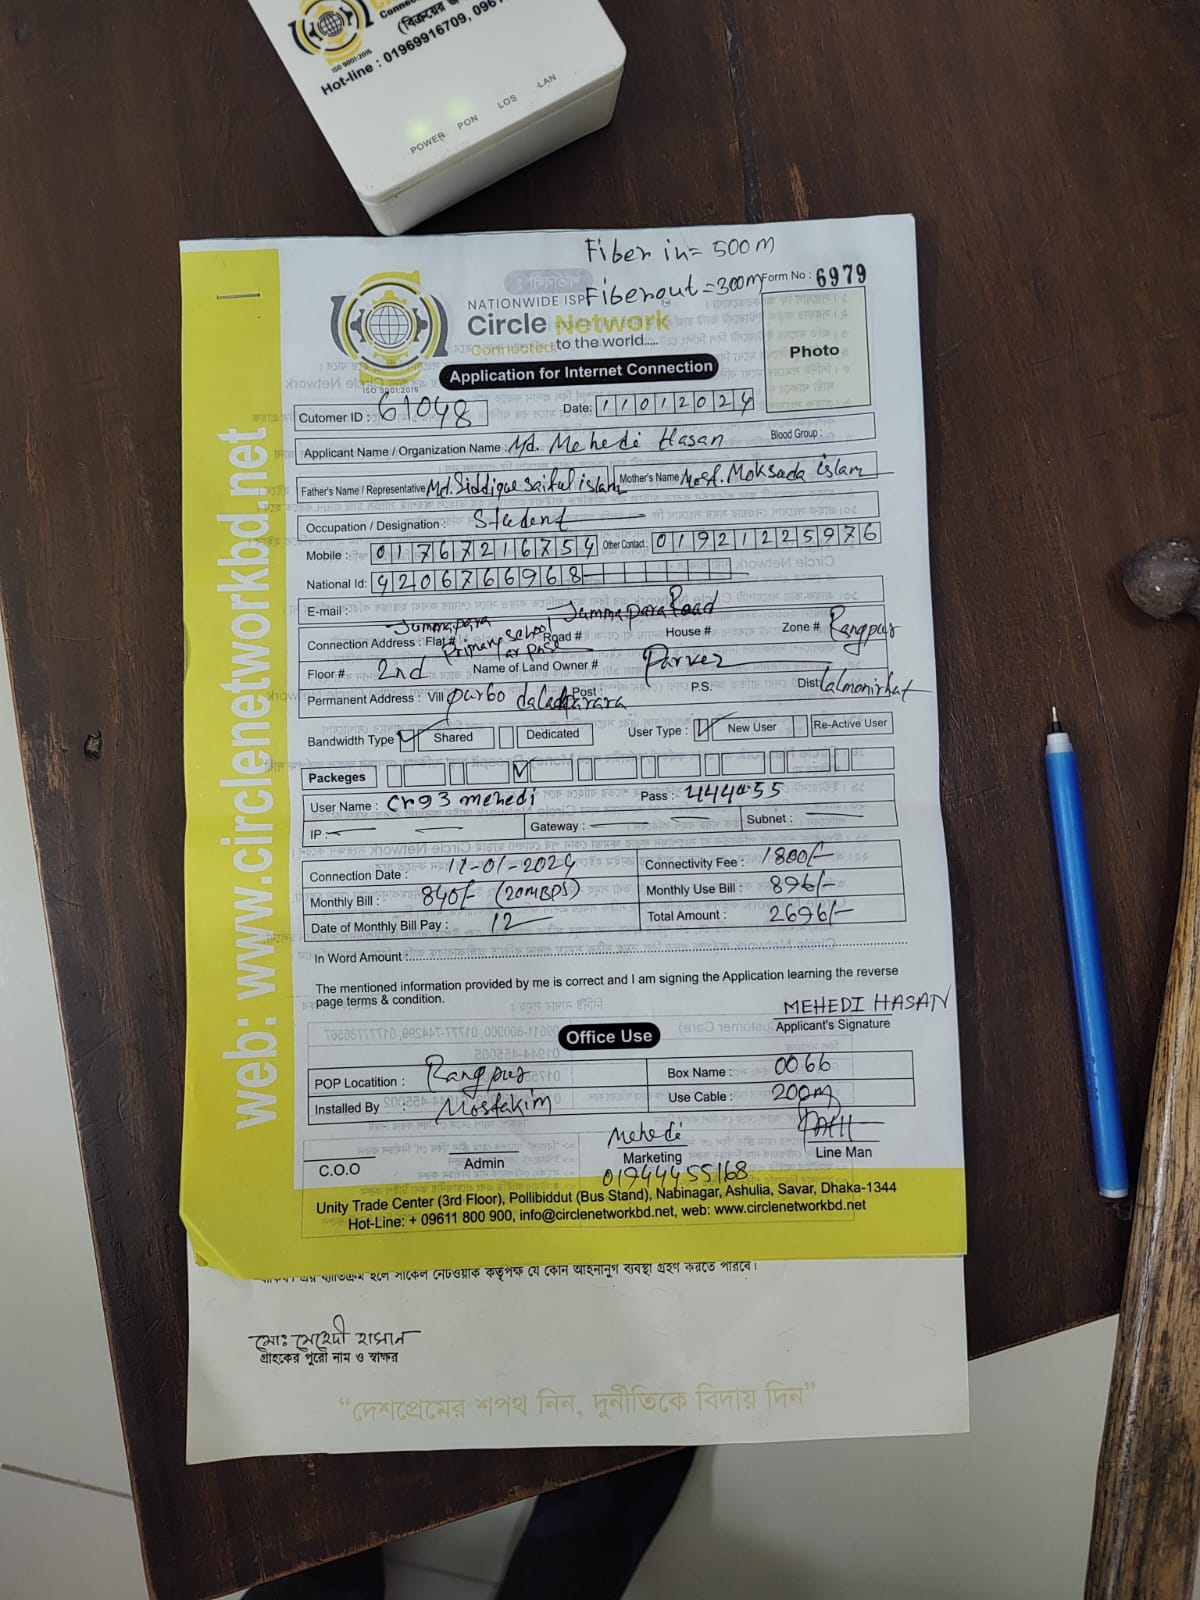 Hot-line : 01969916709, 0961
ISO 9001:2015
POWER PON LOS LAN
Fiber in = 500m
Fiber out = 300m
Form No : 6979
NATIONWIDE ISP
Circle Network
Connected to the world.....
ISO 9001:2015
Photo
Application for Internet Connection
Cutomer ID : 61048 Date: 11012024
Applicant Name / Organization Name : Md. Mehedi Hasan Blood Group :
Father's Name / Representative Md. Siddique saiful islam Mother's Name Most. Moksada islam
Occupation / Designation : Student
Mobile : 01767216754 Other Contact : 01921225976
National Id: 4206766968
E-mail :
Jummapara Jummapara Road
Connection Address : Flat # Primary school Road # House # Zone # Rangpur
Floor # 2nd Name of Land Owner # Parvez
Permanent Address : Vill purbo Post : P.S. Dist Lalmonirhat
Bandwidth Type Shared Dedicated User Type : New User Re-Active User
Packeges
User Name : cr93 mehedi Pass : 444455
IP : Gateway : Subnet :
Connection Date : 11-01-2024 Connectivity Fee : 1800/-
Monthly Bill : 840/- (20MBPS) Monthly Use Bill : 896/-
Date of Monthly Bill Pay : 12 Total Amount : 2696/-
In Word Amount :
The mentioned information provided by me is correct and I am signing the Application learning the reverse
page terms & condition.
MEHEDI HASAN
Applicant's Signature
Office Use
POP Locatition : Rangpur Box Name : 0066
Installed By : Mostakim Use Cable : 200m
Mehedi
C.O.O Admin Marketing Line Man
01944455168
Unity Trade Center (3rd Floor), Pollibiddut (Bus Stand), Nabinagar, Ashulia, Savar, Dhaka-1344
Hot-Line: + 09611 800 900, info@circlenetworkbd.net, web: www.circlenetworkbd.net
web: www.circlenetworkbd.net
হলে সার্কেল নেটওয়াক কতৃপক্ষ যে কোন আইনানুগ ব্যবস্থা গ্রহণ করতে পারবে।
মোঃ মেহেদী হাসান
গ্রাহকের পুরো নাম ও স্বাক্ষর
“দেশপ্রেমের শপথ নিন, দুর্নীতিকে বিদায় দিন”